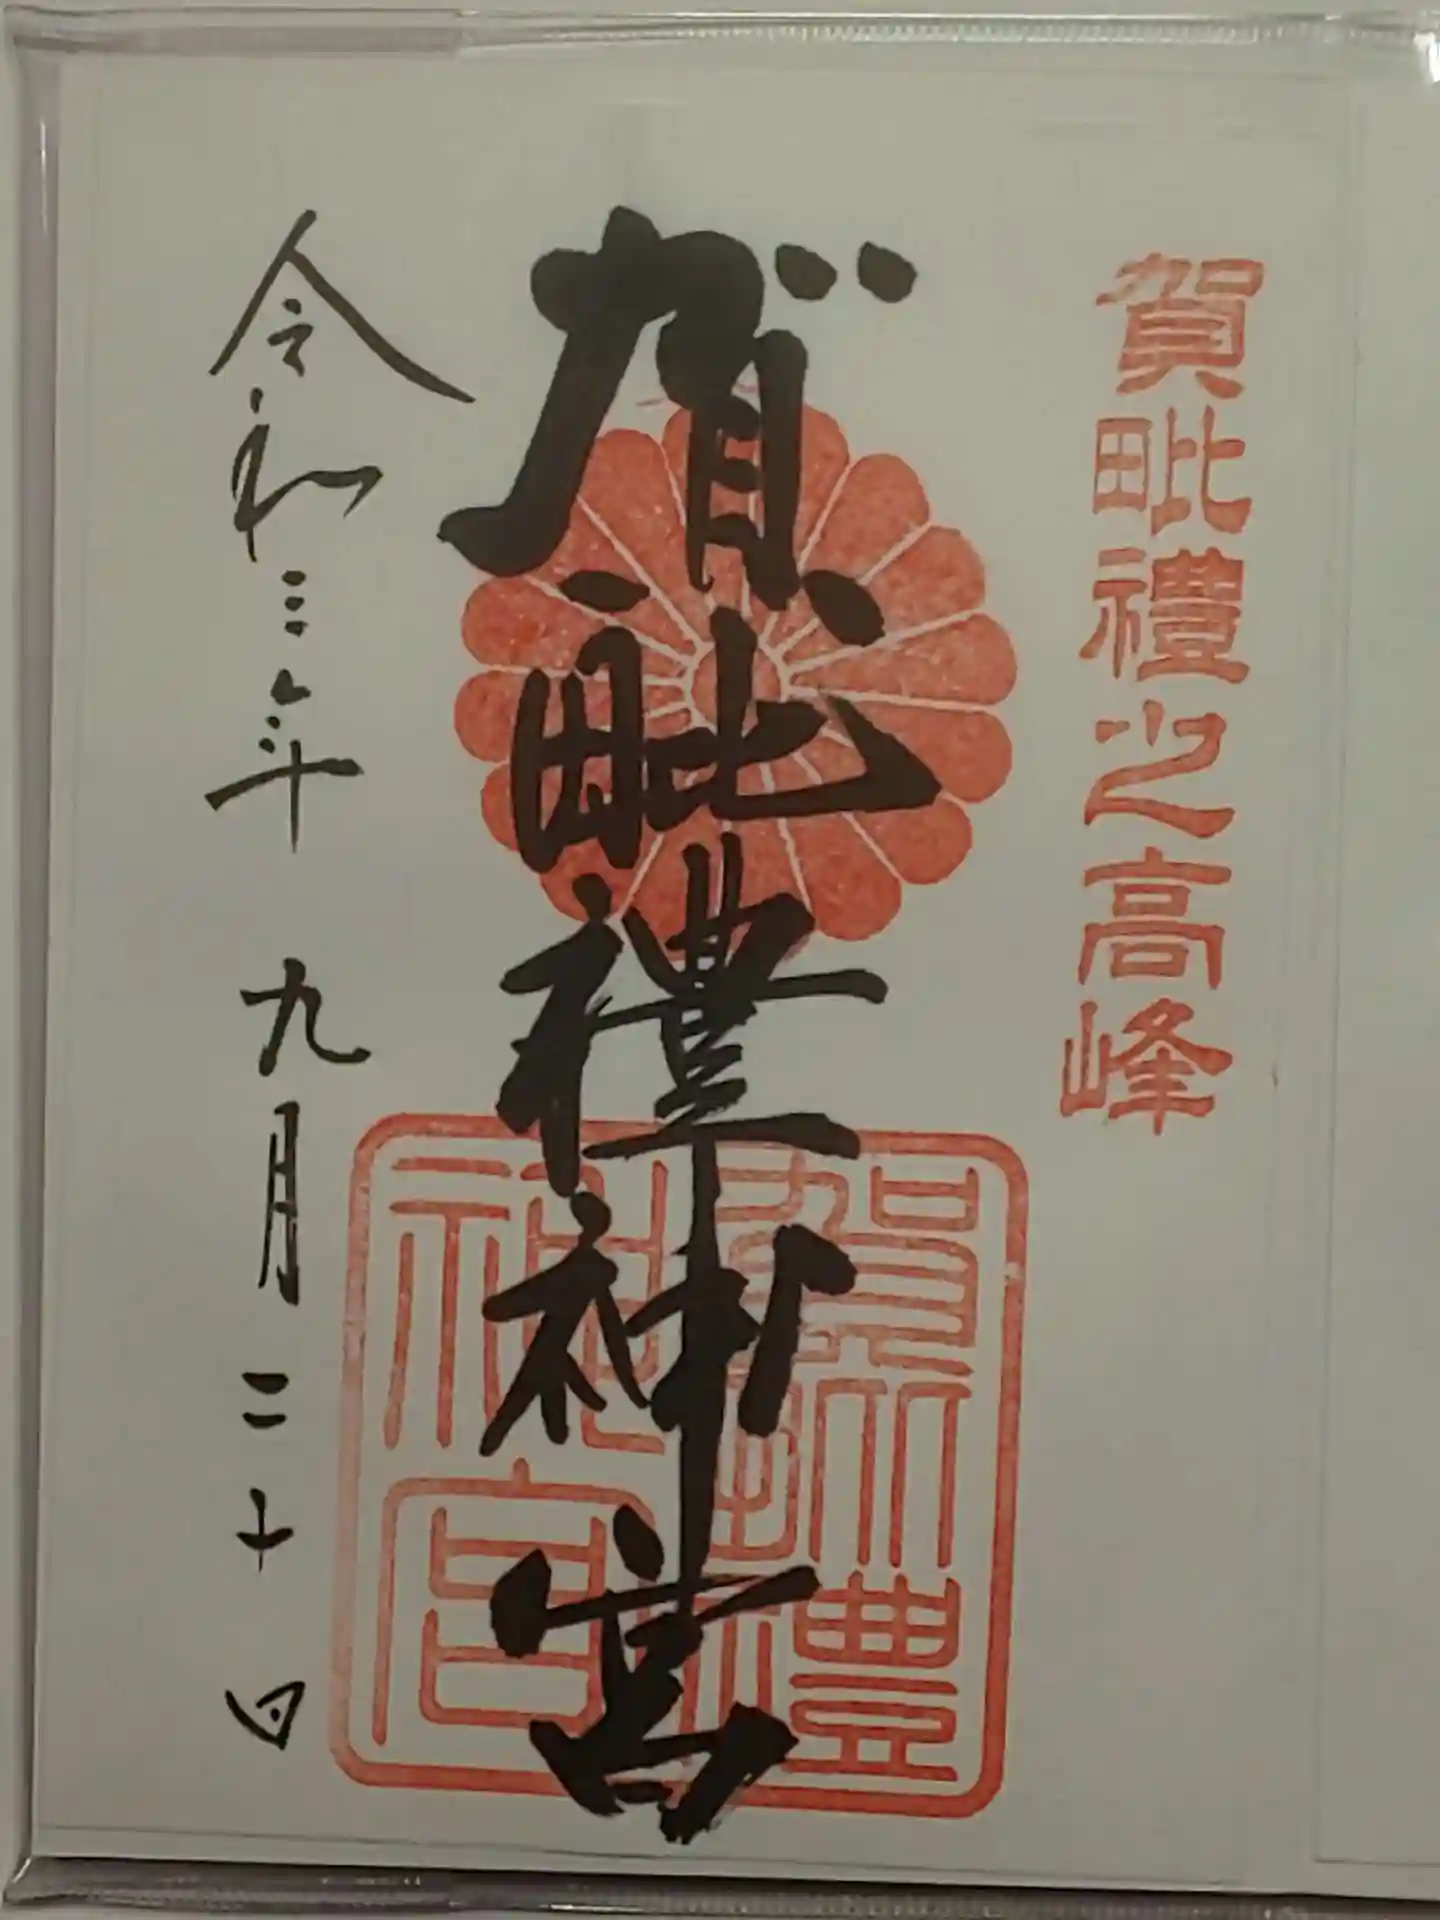 賀毗禮之高峰
賀毗禮神宮
賀毗禮
神宮
令和三年 九月二十日